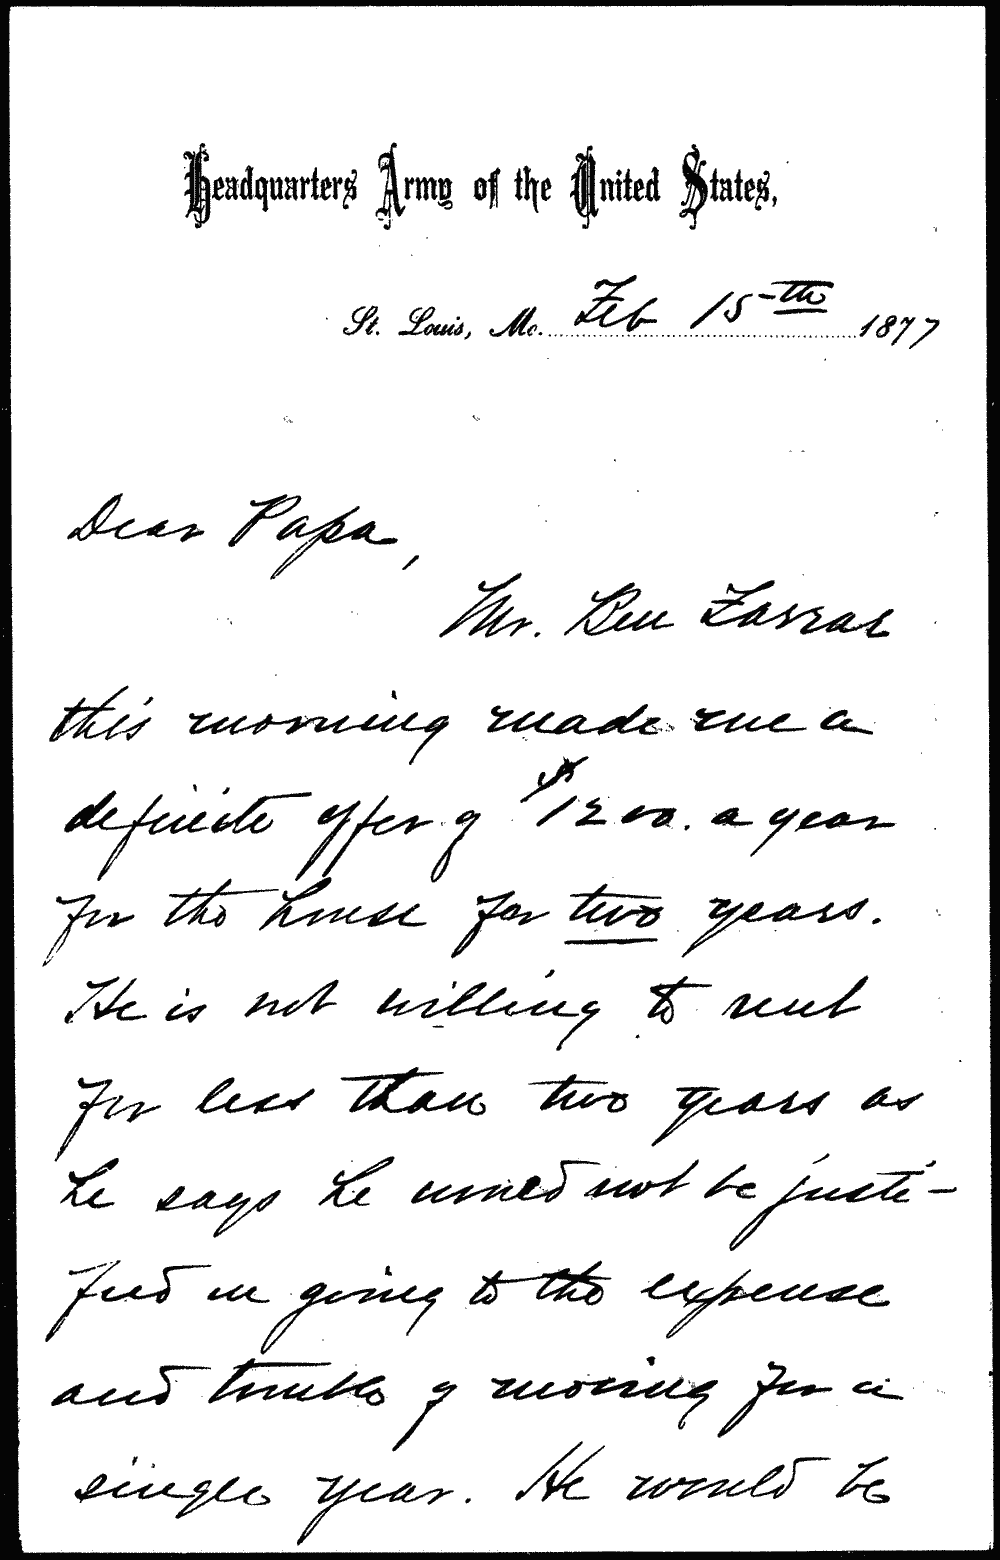 Headquarters Army of the United States,
St. Louis, Mo. Feb 15th 1877
Dear Papa,
Mr. Ben Farrar
this morning made me a
definite offer of $1200. a year
for the house for two years.
He is not willing to rent
for less than two years as
he says he would not be justi-
fied in going to the expense
and trouble of moving for a
single year. He would be